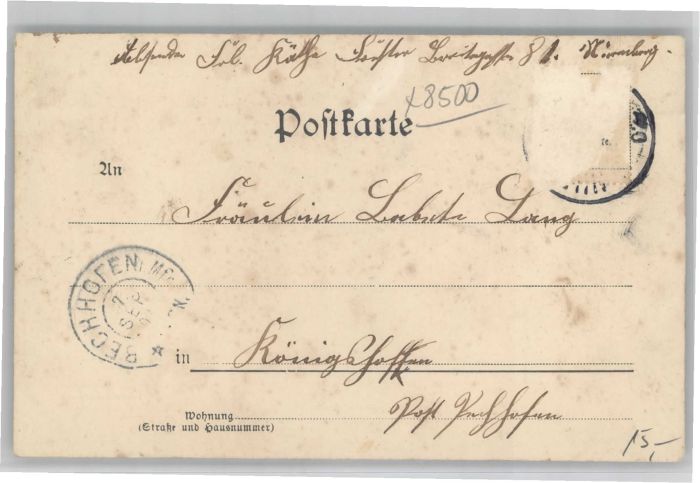 Absender Frl. Käthe Forster Breitegasse 81. Nürnberg.
x8500
Postkarte
An
Fräulein Babete Lang
BECHHOFEN
7 SEP
in Königshofen
Post Bechhofen
Wohnung
(Straße und Hausnummer)
15,-